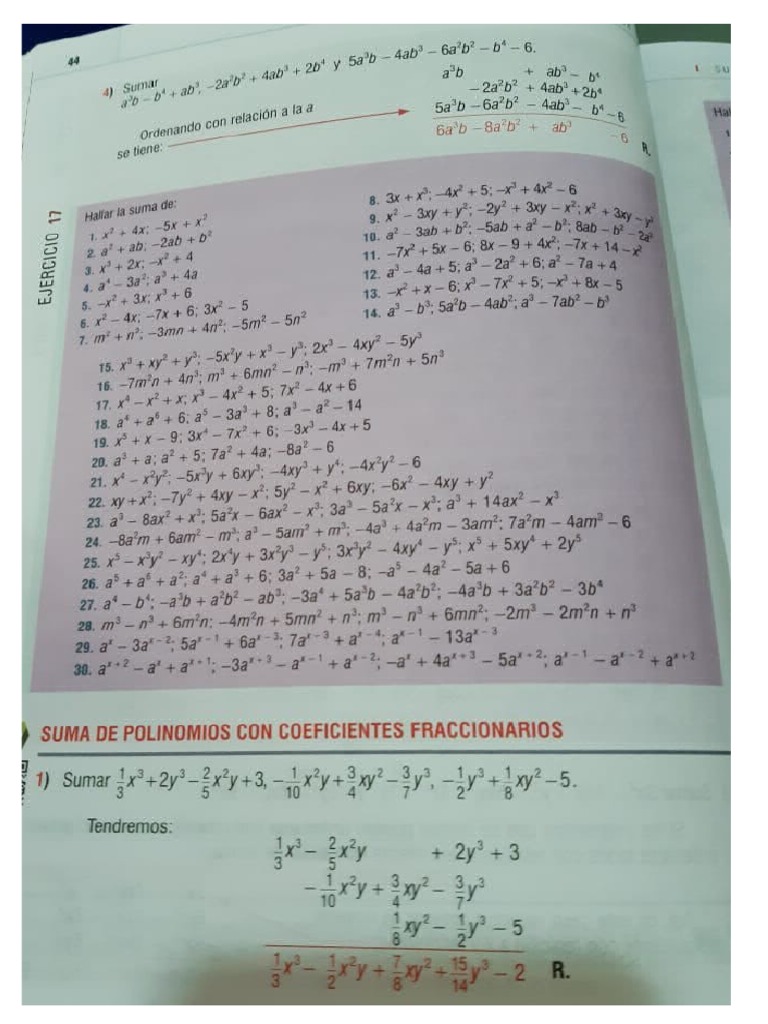 44
4) Sumar
a³b – b⁴ + ab³, –2a²b² + 4ab³ + 2b⁴ y 5a³b – 4ab³ – 6a²b² – b⁴ – 6.
Ordenando con relación a la a
se tiene:
a³b + ab³ – b⁴
– 2a²b² + 4ab³ + 2b⁴
5a³b – 6a²b² – 4ab³ – b⁴ – 6
6a³b – 8a²b² + ab³ – 6 R.
EJERCICIO 17
Hallar la suma de:
1. x² + 4x; –5x + x²
2. a² + ab; –2ab + b²
3. x³ + 2x; –x² + 4
4. a⁴ – 3a²; a³ + 4a
5. –x² + 3x; x³ + 6
6. x² – 4x; –7x + 6; 3x² – 5
7. m² + n²; –3mn + 4n²; –5m² – 5n²
8. 3x + x³; –4x² + 5; –x³ + 4x² – 6
9. x² – 3xy + y²; –2y² + 3xy – x²; x² + 3xy – y²
10. a² – 3ab + b²; –5ab + a² – b²; 8ab – b² – 2a²
11. –7x² + 5x – 6; 8x – 9 + 4x²; –7x + 14 – x²
12. a³ – 4a + 5; a³ – 2a² + 6; a² – 7a + 4
13. –x² + x – 6; x³ – 7x² + 5; –x³ + 8x – 5
14. a³ – b³; 5a²b – 4ab²; a³ – 7ab² – b³
15. x³ + xy² + y³; –5x²y + x³ – y³; 2x³ – 4xy² – 5y³
16. –7m²n + 4n³; m³ + 6mn² – n³; –m³ + 7m²n + 5n³
17. x⁴ – x² + x; x³ – 4x² + 5; 7x² – 4x + 6
18. a⁴ + a⁶ + 6; a⁵ – 3a³ + 8; a³ – a² – 14
19. x⁵ + x – 9; 3x⁴ – 7x² + 6; –3x³ – 4x + 5
20. a³ + a; a² + 5; 7a² + 4a; –8a² – 6
21. x⁴ – x²y²; –5x³y + 6xy³; –4xy³ + y⁴; –4x²y² – 6
22. xy + x²; –7y² + 4xy – x²; 5y² – x² + 6xy; –6x² – 4xy + y²
23. a³ – 8ax² + x³; 5a²x – 6ax² – x³; 3a³ – 5a²x – x³; a³ + 14ax² – x³
24. –8a²m + 6am² – m³; a³ – 5am² + m³; –4a³ + 4a²m – 3am²; 7a²m – 4am² – 6
25. x⁵ – x³y² – xy⁴; 2x⁴y + 3x²y³ – y⁵; 3x³y² – 4xy⁴ – y⁵; x⁵ + 5xy⁴ + 2y⁵
26. a⁵ + a⁶ + a²; a⁴ + a³ + 6; 3a² + 5a – 8; –a⁵ – 4a² – 5a + 6
27. a⁴ – b⁴; –a³b + a²b² – ab³; –3a⁴ + 5a³b – 4a²b²; –4a³b + 3a²b² – 3b⁴
28. m³ – n³ + 6m²n; –4m²n + 5mn² + n³; m³ – n³ + 6mn²; –2m³ – 2m²n + n³
29. aˣ – 3aˣ⁻²; 5aˣ⁻¹ + 6aˣ⁻³; 7aˣ⁻³ + aˣ⁻⁴; aˣ⁻¹ – 13aˣ⁻³
30. aˣ⁺² – aˣ + aˣ⁺¹; –3aˣ⁺³ – aˣ⁻¹ + aˣ⁻²; –aˣ + 4aˣ⁺³ – 5aˣ⁺²; aˣ⁻¹ – aˣ⁻² + aˣ⁺²
SUMA DE POLINOMIOS CON COEFICIENTES FRACCIONARIOS
1) Sumar 1/3x³ + 2y³ – 2/5x²y + 3, – 1/10x²y + 3/4xy² – 3/7y³, – 1/2y³ + 1/8xy² – 5.
Tendremos:
1/3x³ – 2/5x²y + 2y³ + 3
– 1/10x²y + 3/4xy² – 3/7y³
1/8xy² – 1/2y³ – 5
1/3x³ – 1/2x²y + 7/8xy² + 15/14y³ – 2 R.